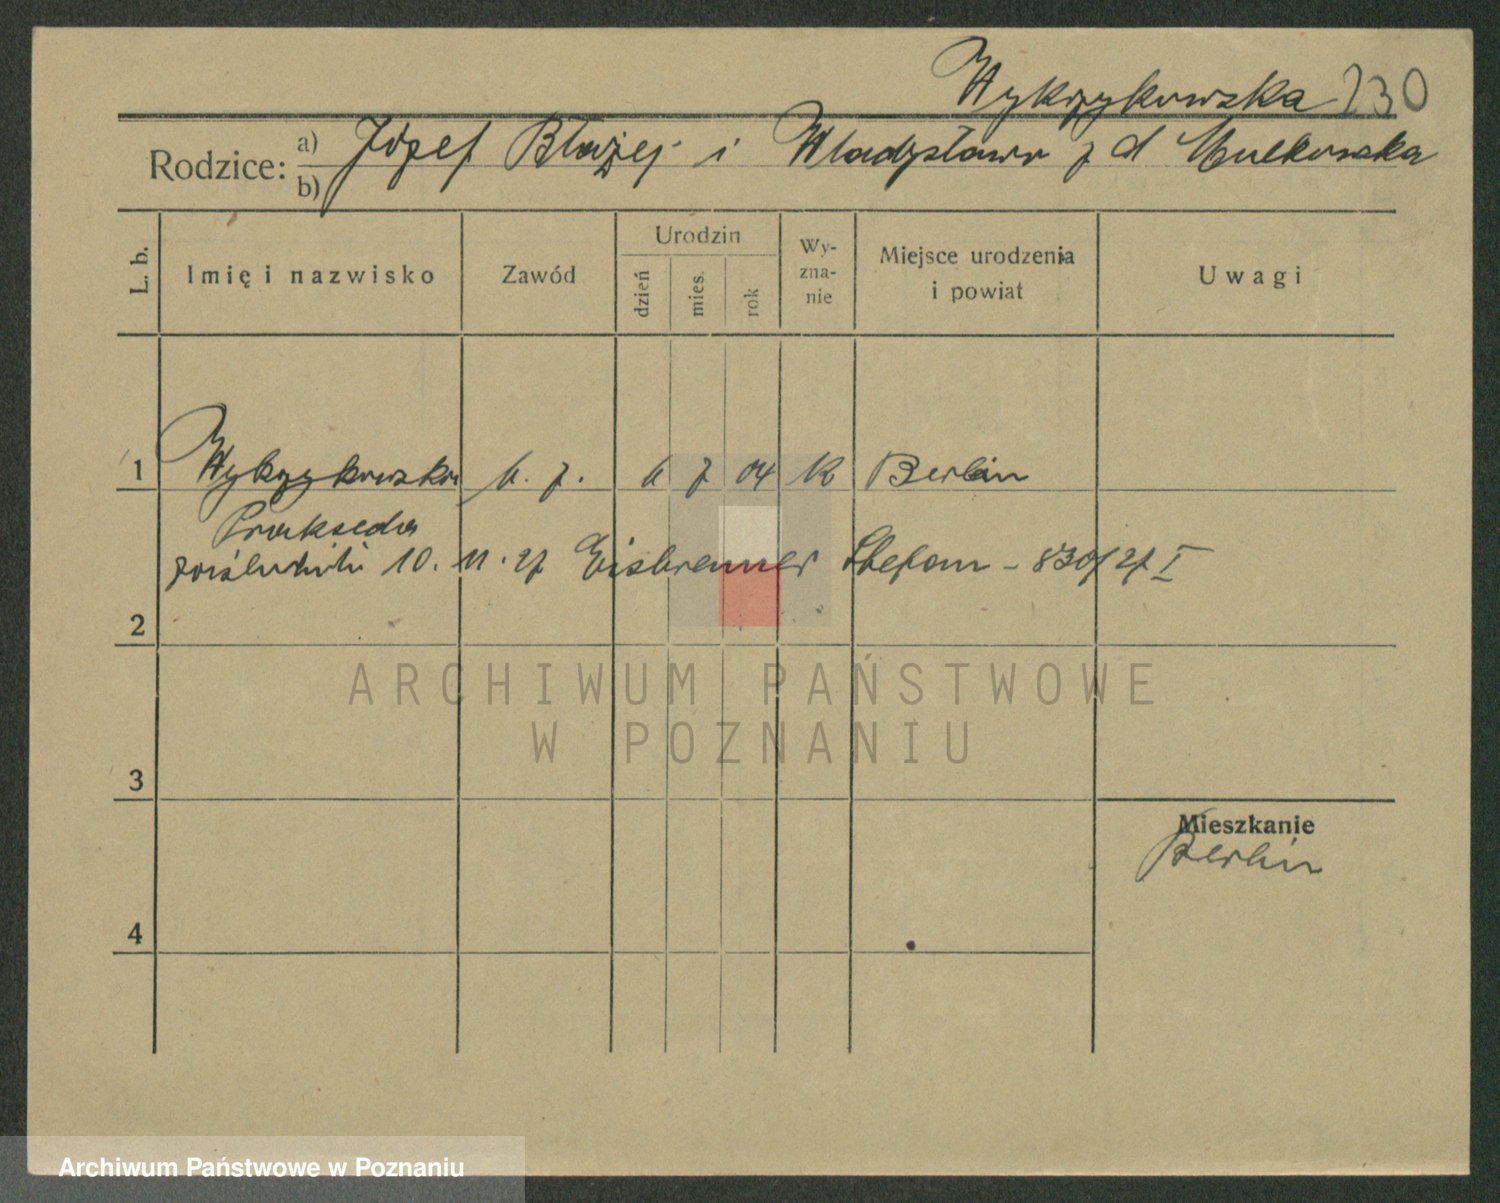 Wykrzykowska 230
Rodzice: a) Józef Błażej i Władysława z d
b)
L. b. Imię i nazwisko Zawód Urodzin dzień mies. rok Wy-zna-nie Miejsce urodzenia i powiat Uwagi
1 Wykrzykowska b. z. 6 7 04 k Berlin
Prakseda
zaślubiła 10. 11. 27 Eisbrenner Stefan - 830/27 I
2
ARCHIWUM PAŃSTWOWE
W POZNANIU
3
Mieszkanie
Berlin
4
Archiwum Państwowe w Poznaniu